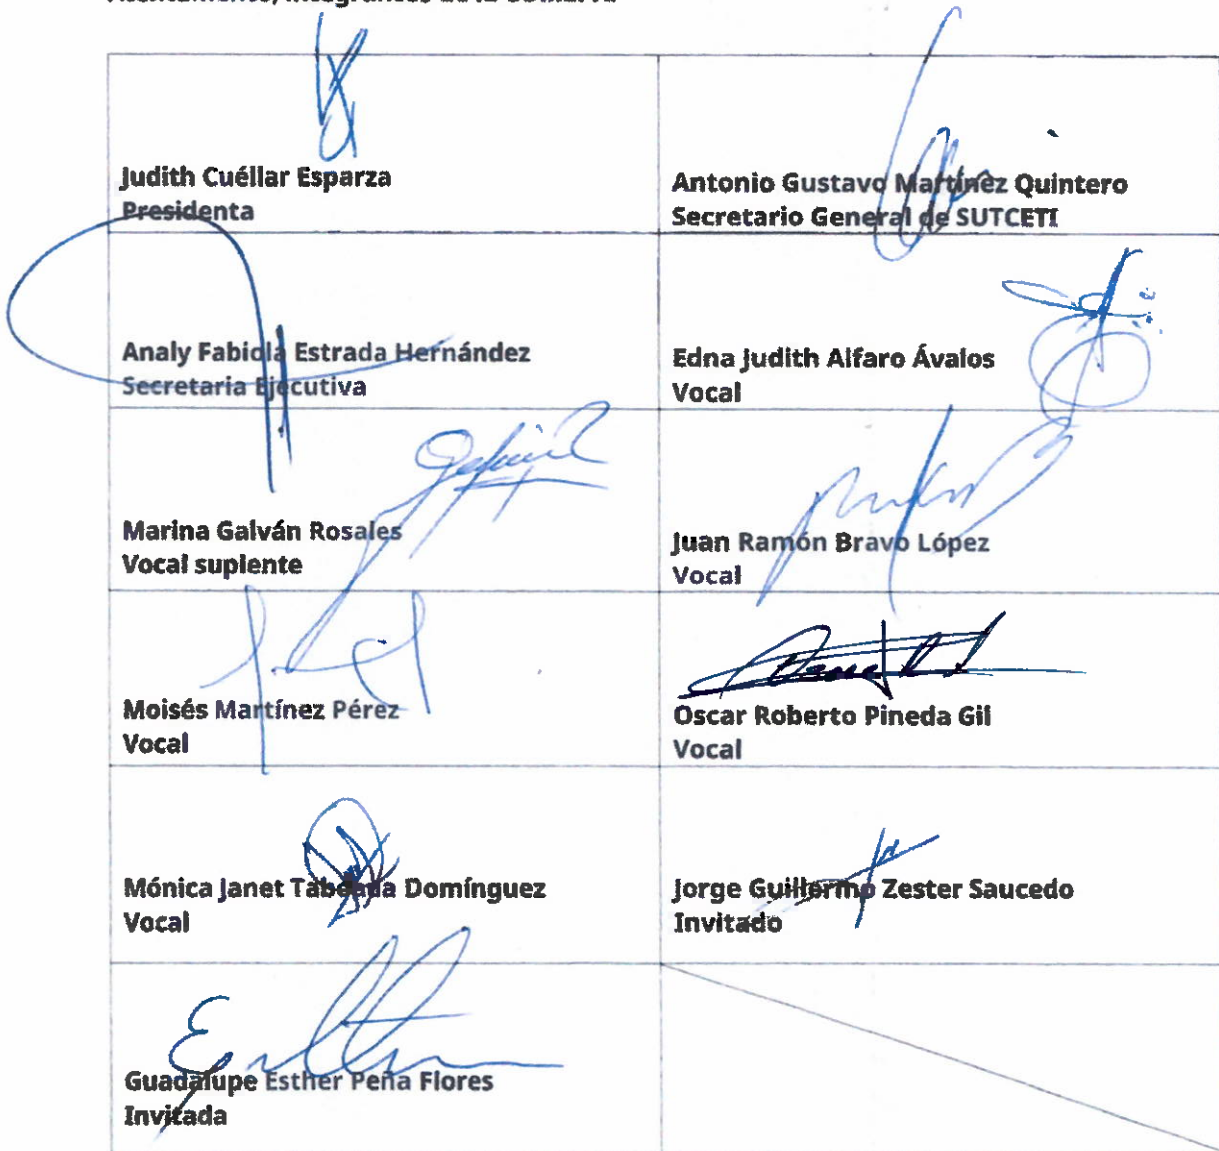 Judith Cuéllar Esparza
Presidenta
Antonio Gustavo Martínez Quintero
Secretario General de SUTCETI
Analy Fabiola Estrada Hernández
Secretaria Ejecutiva
Edna Judith Alfaro Ávalos
Vocal
Marina Galván Rosales
Vocal suplente
Juan Ramón Bravo López
Vocal
Moisés Martínez Pérez
Vocal
Oscar Roberto Pineda Gil
Vocal
Mónica Janet Taboada Domínguez
Vocal
Jorge Guillermo Zester Saucedo
Invitado
Guadalupe Esther Peña Flores
Invitada